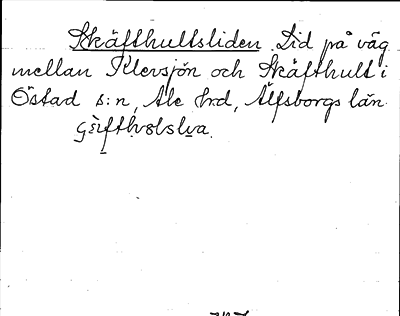 Skäfthultsliden Lid på väg
mellan Klevsjön och Skäfthult i
Östad s:n, Ale hrd, Älfsborgs län.